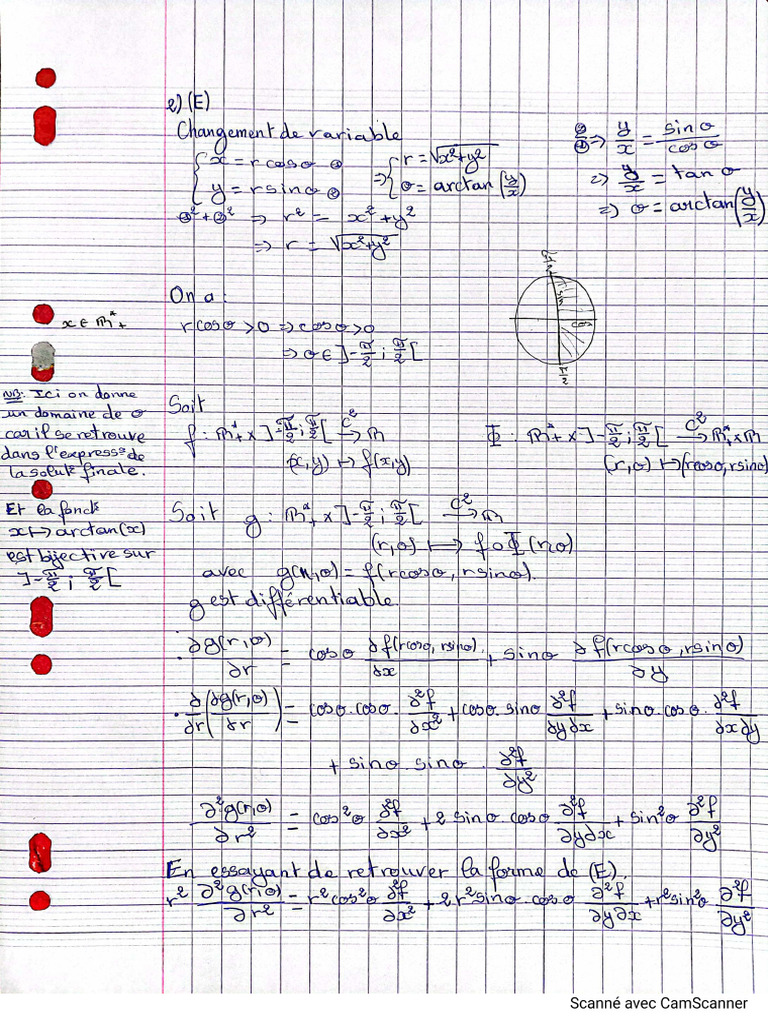 2) (E)
Changement de variable
{ x = r cosθ ①
{ y = r sinθ ②
⇒ { r = √(x²+y²)
{ θ = arctan(y/x)
②/① ⇒ y/x = sinθ/cosθ
⇒ y/x = tanθ
⇒ θ = arctan(y/x)
①² + ②² ⇒ r² = x² + y²
⇒ r = √(x²+y²)
On a :
x ∈ ℝ*₊
r cosθ > 0 ⇒ cosθ > 0
⇒ θ ∈ ]-π/2 ; π/2[
NB: Ici on donne
un domaine de θ
car il se retrouve
dans l'express° de
la solut° finale.
Et la fonct°
x ↦ arctan(x)
est bijective sur
]-π/2 ; π/2[
Soit
f : ℝ*₊ x ]-π/2 ; π/2[ →C² ℝ
(x,y) ↦ f(x,y)
Φ : ℝ*₊ x ]-π/2 ; π/2[ →C² ℝ*₊ x ℝ
(r,θ) ↦ (r cosθ, r sinθ)
Soit g : ℝ*₊ x ]-π/2 ; π/2[ →C² ℝ
(r,θ) ↦ f∘Φ(r,θ)
avec g(r,θ) = f(r cosθ, r sinθ).
g est différentiable.
. ∂g(r,θ)/∂r = cosθ ∂f(r cosθ, r sinθ)/∂x + sinθ ∂f(r cosθ, r sinθ)/∂y
. ∂/∂r (∂g(r,θ)/∂r) = cosθ.cosθ. ∂²f/∂x² + cosθ.sinθ ∂²f/∂y∂x + sinθ.cosθ. ∂²f/∂x∂y
+ sinθ.sinθ. ∂²f/∂y²
∂²g(r,θ)/∂r² = cos²θ ∂²f/∂x² + 2 sinθ cosθ ∂²f/∂y∂x + sin²θ ∂²f/∂y²
En essayant de retrouver la forme de (E).
r² ∂²g(r,θ)/∂r² = r² cos²θ ∂²f/∂x² + 2r² sinθ.cosθ ∂²f/∂y∂x + r² sin²θ ∂²f/∂y²
Scanné avec CamScanner